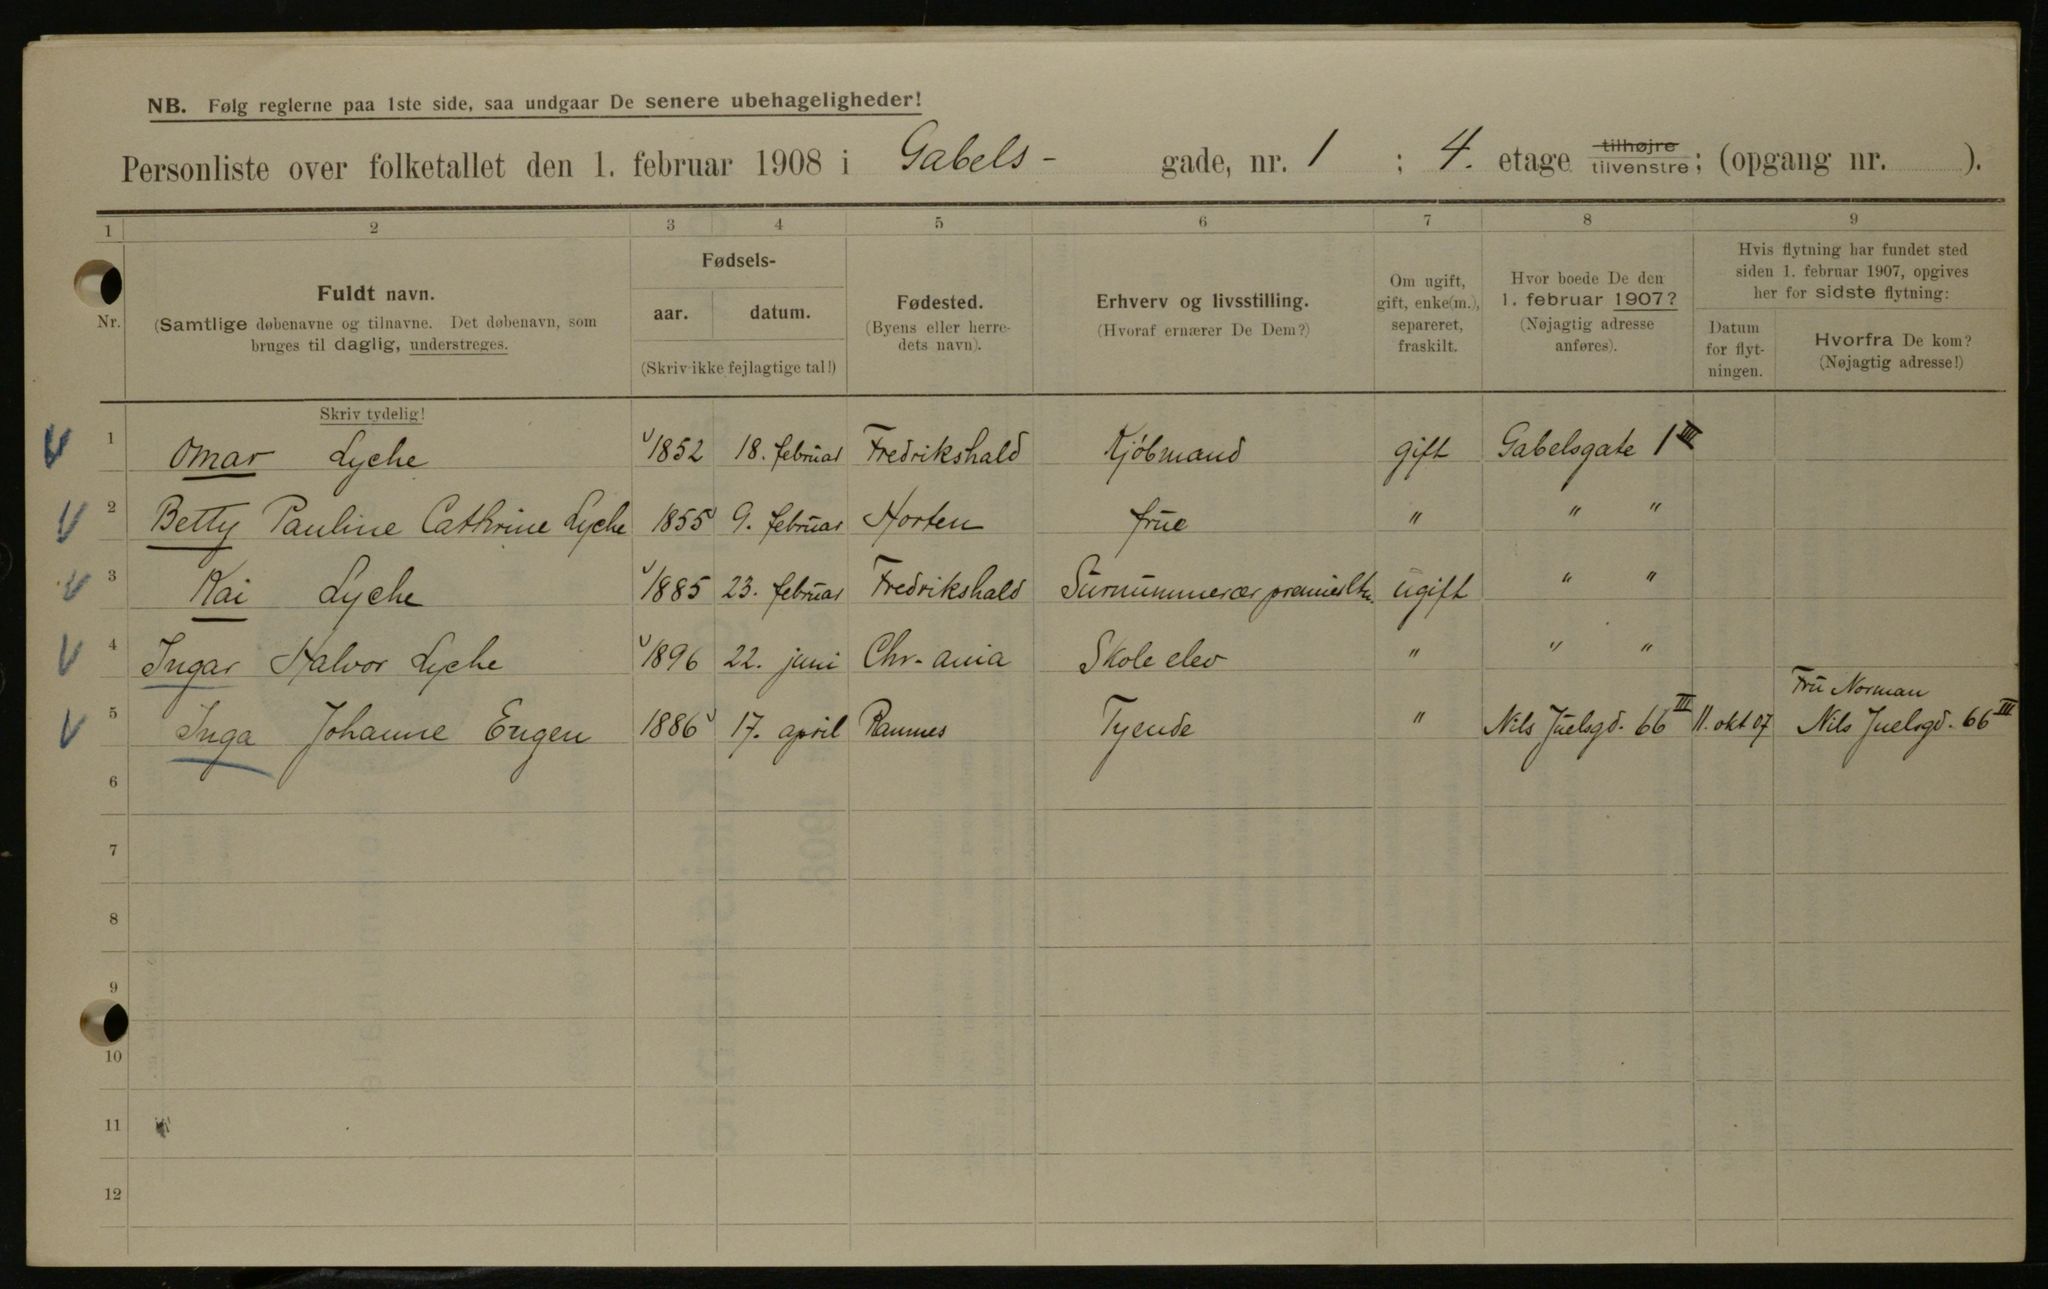 NB. Følg reglerne paa 1ste side, saa undgaar De senere ubehageligheder!
Personliste over folketallet den 1. februar 1908 i Gabels- gade, nr. 1 ; 4. etage tilhøjre tilvenstre; (opgang nr. ).
1 2 3 4 5 6 7 8 9
Nr.
Fuldt navn.
(Samtlige døbenavne og tilnavne. Det døbenavn, som
bruges til daglig, understreges.
Skriv tydelig!
Fødsels-
aar. datum.
(Skriv ikke fejlagtige tal!)
Fødested.
(Byens eller herre-
dets navn).
Erhverv og livsstilling.
(Hvoraf ernærer De Dem?)
Om ugift,
gift, enke(m.),
separeret,
fraskilt.
Hvor boede De den
1. februar 1907?
(Nøjagtig adresse
anføres).
Hvis flytning har fundet sted
siden 1. februar 1907, opgives
her for sidste flytning:
Datum
for flyt-
ningen.
Hvorfra De kom?
(Nøjagtig adresse!)
1 Omar Lyche 1852 18. februar Fredrikshald Kjøbmand gift Gabelsgate 1 IIII
2 Betty Pauline Cathrine Lyche 1855 9. februar Horten frue " " "
3 Kai Lyche 1885 23. februar Fredrikshald Surnummerær premierltn. ugift " "
4 Ingar Halvor Lyche 1896 22. juni Chr-ania Skoleelev " " "
Fru Norman
5 Inga Johanne Engen 1886 17. april Ramnes Tyende " Nils Juelsgd. 66 III 11. okt 07 Nils Juelsgd. 66 III
6
7
8
9
10
11
12